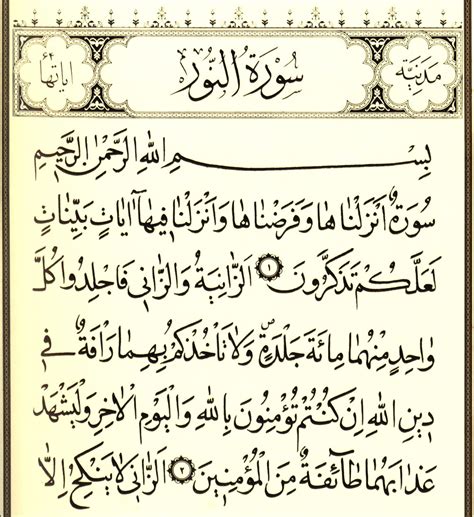 مدنية سورة النور اياتها ٦٤
بسم الله الرحمن الرحيم
سورة انزلناها وفرضناها وانزلنا فيها ايات بينات
لعلكم تذكرون ١ الزانية والزاني فاجلدوا كل
واحد منهما مائة جلدة ص ولا تاخذكم بهما رافة في
دين الله ان كنتم تؤمنون بالله واليوم الاخر وليشهد
عذابهما طائفة من المؤمنين ٢ الزاني لا ينكح الا